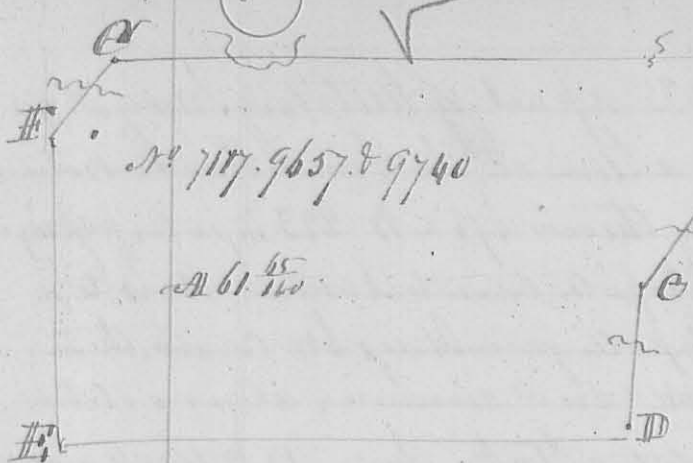 A
F
No 7187. 9657. & 9740
A 61 65/160
C
E
D